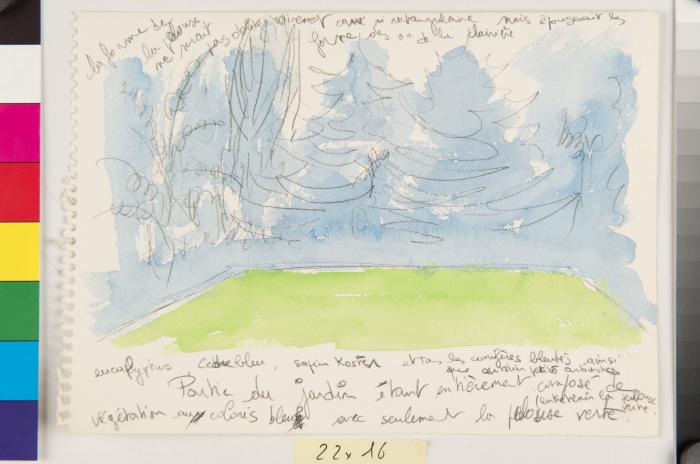 la forme de la pelouse
ne serait pas obligatoirement carré ni rectangulaire mais épouserait les
formes des ou de la clairière
eucalyptus, Cèdre bleu, sapin Koster et tous les conifères bleutés ainsi
que certain petits arbustes
Partie du jardin étant entièrement composé de
végétation au coloris bleu avec seulement la pelouse verte.
(entretenir la pelouse
verte.
22 x 16